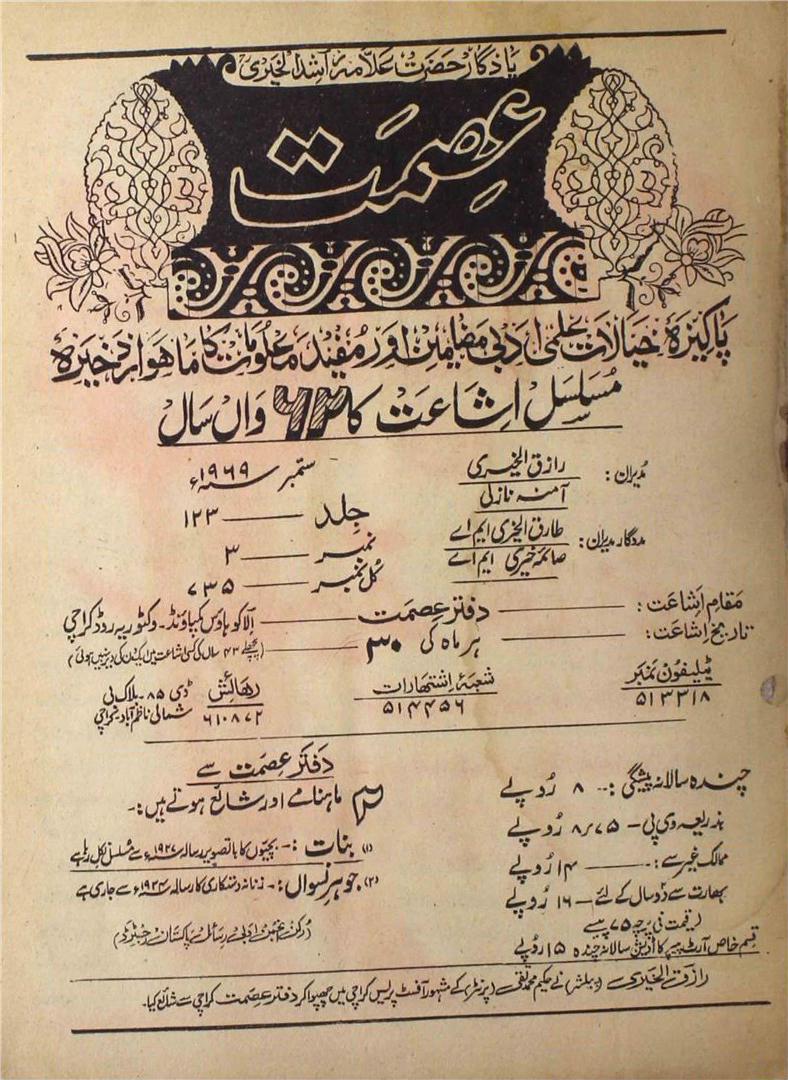 یادگار حضرت علامہ راشد الخیری
عصمت
پاکیزہ خیالات علمی ادبی مضامین اور مفید معلومات کا ماہوار ذخیرہ
مسلسل اشاعت کا ۶۲ واں سال
مدیران: رازق الخیری
آمنہ نازلی
مددگار مدیران: طارق الخیری ایم اے
صائمہ خیری ایم اے
ستمبر سنہ ۱۹۶۹ء
جلد —— ۱۲۳
نمبر —— ۳
کل نمبر —— ۷۳۵
مقام اشاعت: —— دفتر عصمت —— الآکو ہاؤس کمپاؤنڈ۔ وکٹوریہ روڈ کراچی
تاریخ اشاعت: —— ہر ماہ کی ۳۰ —— (پچھلے ۴۳ سال کی کسی اشاعت میں ایک دن کی دیر نہیں ہوئی)
ٹیلیفون نمبر
۵۱۳۳۱۸
شعبۂ اشتہارات
۵۱۴۴۵۶
رہائش
۶۱۰۸۷۲
ڈی ۸۵۔ بلاک بی
شمالی ناظم آباد۔ کراچی
چندہ سالانہ پیشگی :۔ ۸ روپے
بذریعہ وی پی — ۸/۷۵ روپے
ممالک غیر سے :۔ —— ۱۴ روپے
بھارت سے دو سال کے لئے — ۱۶ روپے
قیمت فی پرچہ ۷۵ پیسے
قسم خاص آرٹ پیپر کا اڈیشن سالانہ چندہ ۱۵ روپے
دفتر عصمت سے
۲ ماہنامے اور شائع ہوتے ہیں:۔
(۱) بنات :۔ بچیوں کا باتصویر رسالہ سنہ ۱۹۲۷ء سے مسلسل نکل رہا ہے
(۲) جوہر نسواں :۔ زنانہ دستکاری کا رسالہ سنہ ۱۹۳۴ء سے جاری ہے
(رکن انجمن ادبی رسائل پاکستان رجسٹرڈ)
رازق الخیری (پبلشر) نے حکیم محمد تقی (پرنٹر) کے مشہور آفسٹ پریس کراچی میں چھپوا کر دفتر عصمت کراچی سے شائع کیا۔